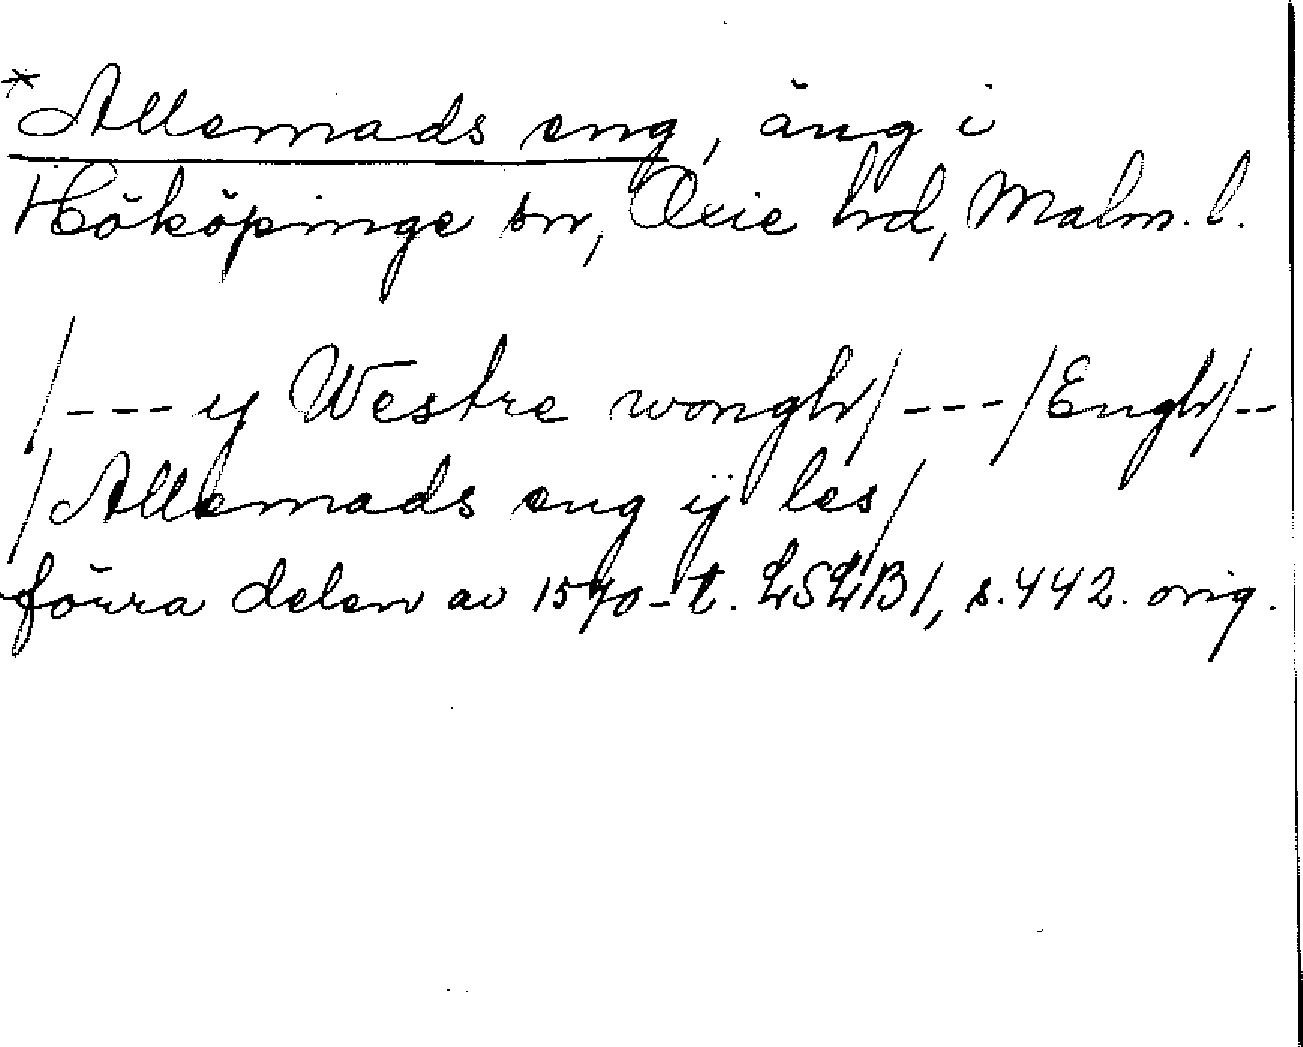 *Allemads eng, äng i
Hököpinge sn, Oxie hd, Malm. l.
/--- y Westre wongh/ ---/Engh/--
/Allemads eng ij les/
förra delen av 1570-t. LSLB1, s. 442. orig.